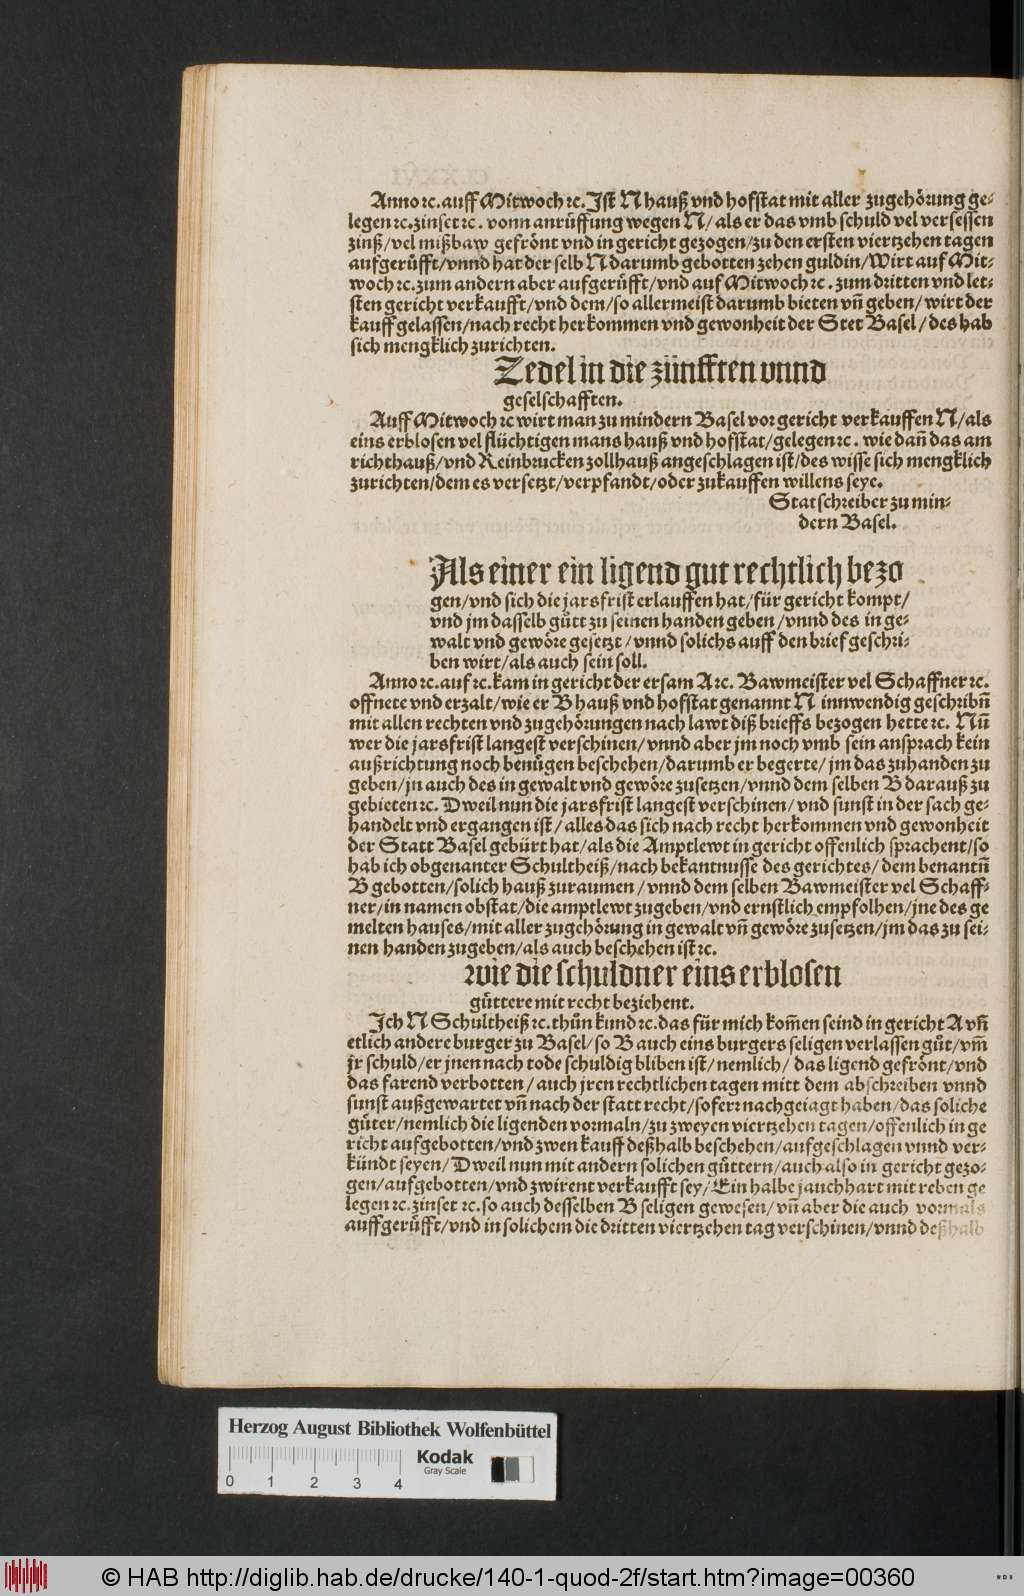 Anno ꝛc. auff Mitwoch ꝛc. Jst N hauß vnd hofstat mit aller zugehörung ge⸗
legen ꝛc. zinset ꝛc. vonn anrüffung wegen N/ als er das vmb schuld vel versessen
zinß/ vel mißbaw gefrönt vnd in gericht gezogen/ zu den ersten viertzehen tagen
aufgerüfft/ vnnd hat der selb N darumb gebotten zehen guldin/ Wirt auf Mit⸗
woch ꝛc. zum andern aber aufgerüfft/ vnd auf Mitwoch ꝛc. zum dritten vnd let⸗
sten gericht verkaufft/ vnd dem/ so allermeist darumb bieten vñ geben/ wirt der
kauff gelassen/ nach recht herkommen vnd gewonheit der Stet Basel/ des hab
sich mengklich zurichten.
Zedel in die zünfften vnnd
geselschafften.
Auff Mitwoch ꝛc wirt man zu mindern Basel vor gericht verkauffen N/ als
eins erblosen vel flüchtigen mans hauß vnd hofstat/ gelegen ꝛc. wie dañ das am
richthauß/ vnd Reinbrucken zollhauß angeschlagen ist/ des wisse sich mengklich
zurichten/ dem es versetzt/ verpfandt/ oder zukauffen willens seye.
Statschreiber zu min⸗
dern Basel.
Als einer ein ligend gut rechtlich bezo
gen/ vnd sich die jarsfrist erlauffen hat/ für gericht kompt/
vnd jm dasselb gůtt zu seinen handen geben/ vnnd des in ge⸗
walt vnd gewöre gesetzt/ vnnd solichs auff den brief geschri⸗
ben wirt/ als auch sein soll.
Anno ꝛc. auf ꝛc. kam in gericht der ersam A ꝛc. Bawmeister vel Schaffner ꝛc.
offnete vnd erzalt/ wie er B hauß vnd hofstat genannt N innwendig geschribñ
mit allen rechten vnd zugehörungen nach lawt diß brieffs bezogen hette ꝛc. Nũ
wer die jarsfrist langest verschinen/ vnnd aber jm noch vmb sein ansprach kein
außrichtung noch benügen beschehen/ darumb er begerte/ jm das zuhanden zu
geben/ jn auch des in gewalt vnd gewöre zusetzen/ vnnd dem selben B darauß zu
gebieten ꝛc. Dweil nun die jarsfrist langest verschinen/ vnd sunst in der sach ge⸗
handelt vnd ergangen ist/ alles das sich nach recht herkommen vnd gewonheit
der Statt Basel gebürt hat/ als die Amptlewt in gericht offenlich sprachent/ so
hab ich obgenanter Schultheiß/ nach bekantnusse des gerichtes/ dem benantñ
B gebotten/ solich hauß zuraumen/ vnnd dem selben Bawmeister vel Schaff⸗
ner/ in namen obstat/ die amptlewt zugeben/ vnd ernstlich empfolhen/ jne des ge
melten hauses/ mit aller zugehörung in gewalt vñ gewöre zusetzen/ jm das zu sei⸗
nen handen zugeben/ als auch beschehen ist ꝛc.
wie die schuldner eins erblosen
güttere mit recht beziehent.
Jch N Schultheiß ꝛc. thůn kund ꝛc. das für mich kom̃en seind in gericht A vñ
etlich andere burger zu Basel/ so B auch eins burgers seligen verlassen gůt/ vm̃
jr schuld/ er jnen nach tode schuldig bliben ist/ nemlich/ das ligend gefrönt/ vnd
das farend verbotten/ auch jren rechtlichen tagen mitt dem abschreiben vnnd
sunst außgewartet vñ nach der statt recht/ soferr nachgeiagt haben/ das soliche
güter/ nemlich die ligenden vormaln/ zu zweyen viertzehen tagen/ offenlich in ge
richt aufgebotten/ vnd zwen kauff deßhalb beschehen/ aufgeschlagen vnnd ver⸗
kündt seyen/ Dweil nun mit andern solichen güttern/ auch also in gericht gezo⸗
gen/ aufgebotten/ vnd zwirent verkaufft sey/ Ein halbe jauchhart mit reben ge
legen ꝛc. zinset ꝛc. so auch desselben B seligen gewesen/ vñ aber die auch vormals
auffgerüfft/ vnd in solichem die dritten viertzehen tag verschinen/ vnnd deßhalb
Herzog August Bibliothek Wolfenbüttel
Kodak
Gray Scale
0 1 2 3 4
© HAB http://diglib.hab.de/drucke/140-1-quod-2f/start.htm?image=00360